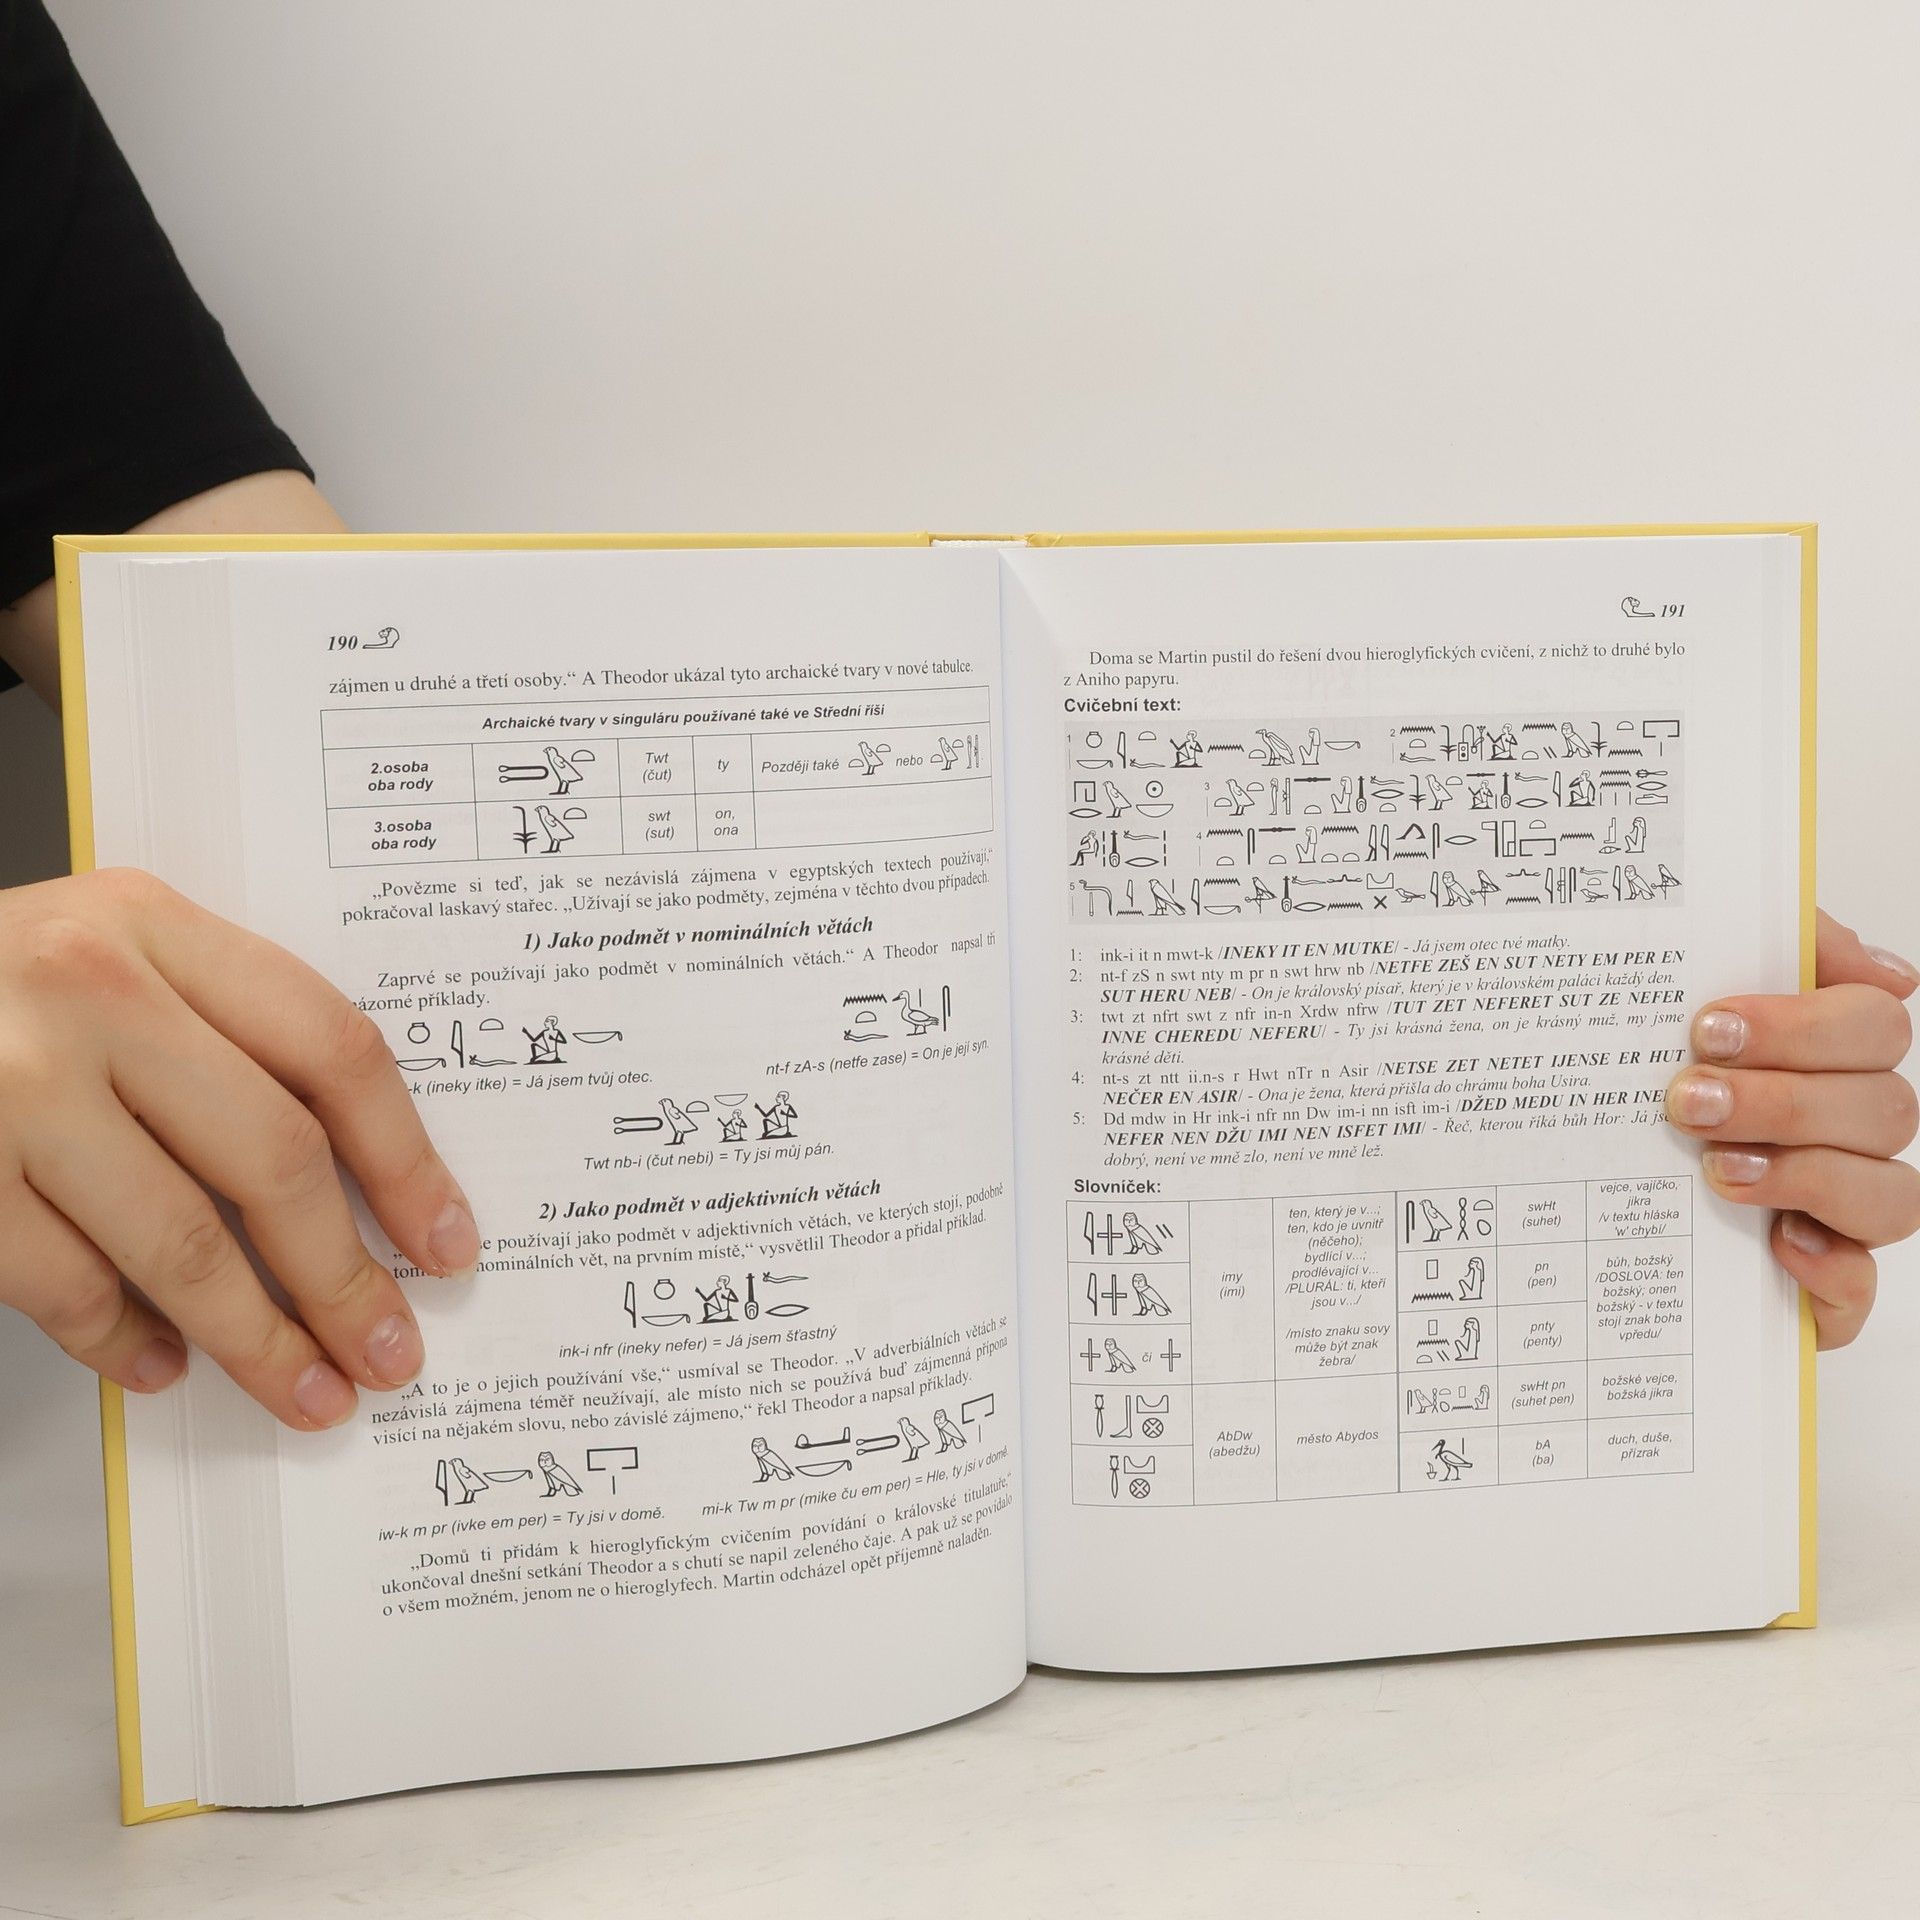 190
zájmen u druhé a třetí osoby.“ A Theodor ukázal tyto archaické tvary v nové tabulce.
Archaické tvary v singuláru používané také ve Střední říši
2.osoba oba rody Twt (čut) ty Později také nebo
3.osoba oba rody swt (sut) on, ona
„Povězme si teď, jak se nezávislá zájmena v egyptských textech používají,“
pokračoval laskavý stařec. „Užívají se jako podměty, zejména v těchto dvou případech.
1) Jako podmět v nominálních větách
Zaprvé se používají jako podmět v nominálních větách.“ A Theodor napsal tři
názorné příklady.
-k (ineky itke) = Já jsem tvůj otec.
nt-f zA-s (netfe zase) = On je její syn.
Twt nb-i (čut nebi) = Ty jsi můj pán.
2) Jako podmět v adjektivních větách
se používají jako podmět v adjektivních větách, ve kterých stojí, podobně
nominálních vět, na prvním místě,“ vysvětlil Theodor a přidal příklad.
ink-i nfr (ineky nefer) = Já jsem šťastný
„A to je o jejich používání vše,“ usmíval se Theodor. „V adverbiálních větách se
nezávislá zájmena téměř neužívají, ale místo nich se používá buď zájmenná přípona
visící na nějakém slovu, nebo závislé zájmeno,“ řekl Theodor a napsal příklady.
iw-k m pr (ivke em per) = Ty jsi v domě.
mi-k Tw m pr (mike ču em per) = Hle, ty jsi v domě.
„Domů ti přidám k hieroglyfickým cvičením povídání o královské titulatuře,“
ukončoval dnešní setkání Theodor a s chutí se napil zeleného čaje. A pak už se povídalo
o všem možném, jenom ne o hieroglyfech. Martin odcházel opět příjemně naladěn.
191
Doma se Martin pustil do řešení dvou hieroglyfických cvičení, z nichž to druhé bylo
z Aniho papyru.
Cvičební text:
1
2
3
4
5
1: ink-i it n mwt-k /INEKY IT EN MUTKE/ - Já jsem otec tvé matky.
2: nt-f zS n swt nty m pr n swt hrw nb /NETFE ZEŠ EN SUT NETY EM PER EN
SUT HERU NEB/ - On je královský písař, který je v královském paláci každý den.
3: twt zt nfrt swt z nfr in-n Xrdw nfrw /TUT ZET NEFERET SUT ZE NEFER
INNE CHEREDU NEFERU/ - Ty jsi krásná žena, on je krásný muž, my jsme
krásné děti.
4: nt-s zt ntt ii.n-s r Hwt nTr n Asir /NETSE ZET NETET IJENSE ER HUT
NEČER EN ASIR/ - Ona je žena, která přišla do chrámu boha Usira.
5: Dd mdw in Hr ink-i nfr nn Dw im-i nn isft im-i /DŽED MEDU IN HER
NEFER NEN DŽU IMI NEN ISFET IMI/ - Řeč, kterou říká bůh Hor: Já
dobrý, není ve mně zlo, není ve mně lež.
Slovníček:
imy
(imi)
ten, který je v...;
ten, kdo je uvnitř
(něčeho);
bydlící v...;
prodlévající v...
/PLURÁL: ti, kteří
jsou v.../
/místo znaku sovy
může být znak
žebra/
či
AbDw
(abedžu)
město Abydos
swHt
(suhet)
vejce, vajíčko,
jikra
/v textu hláska
'w' chybí/
pn
(pen)
pnty
(penty)
bůh, božský
/DOSLOVA: ten
božský; onen
božský - v textu
stojí znak boha
vpředu/
swHt pn
(suhet pen)
božské vejce,
božská jikra
bA
(ba)
duch, duše,
přízrak